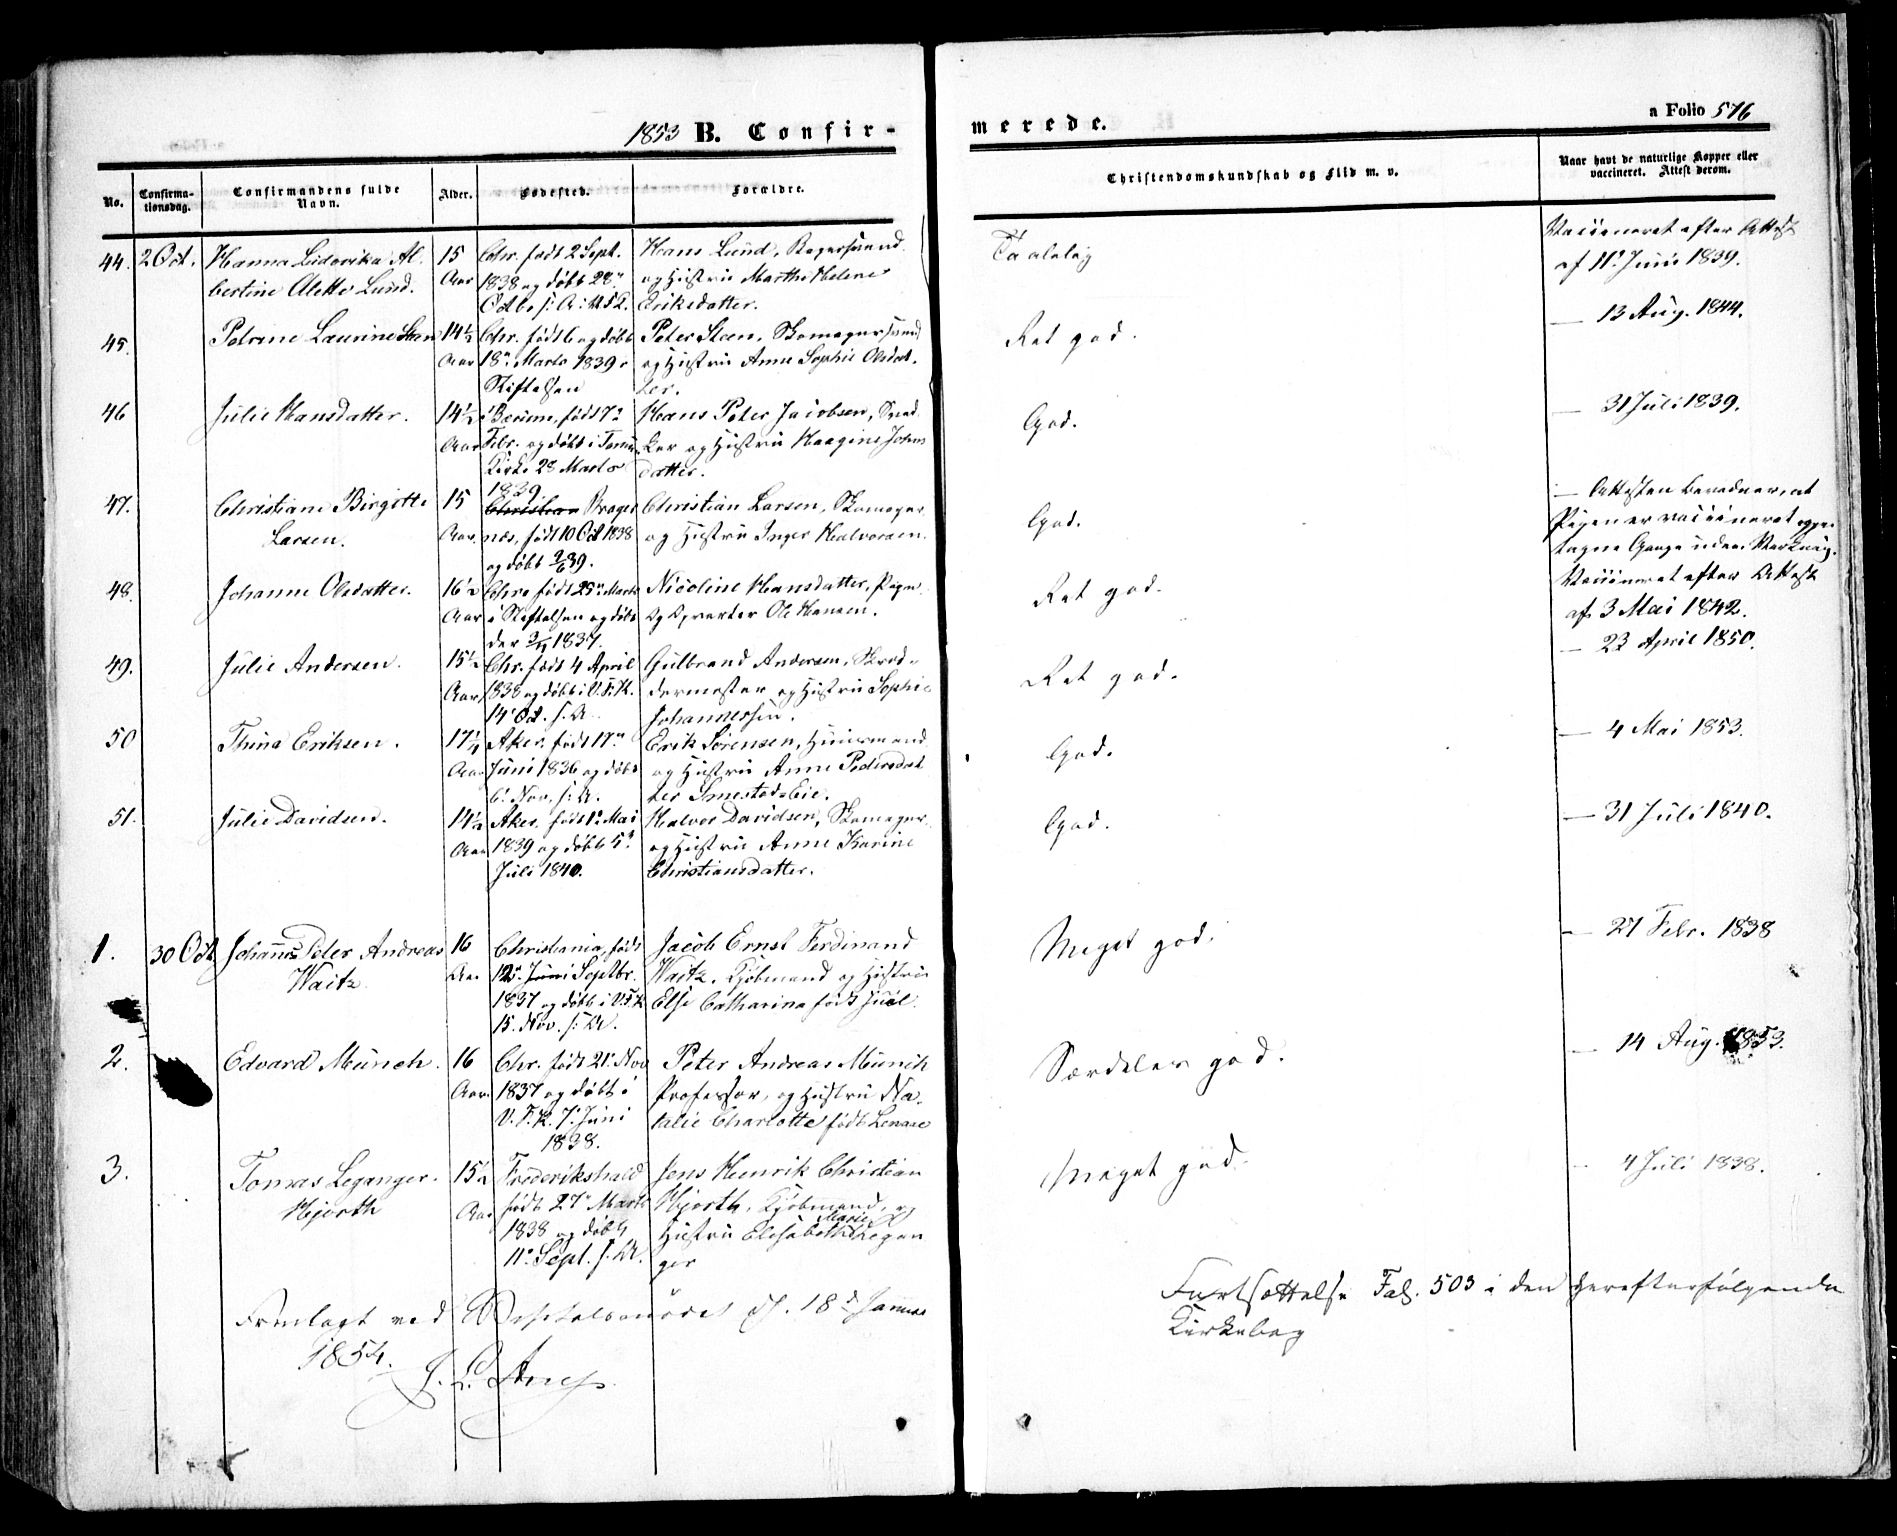 1853 B. Confir-
merede.
a Folio 576
No.
Confirma-
tionsdag.
Confirmandens fulde
Navn.
Alder.
Fødested.
Forældre.
Christendomskundskab og Flid m. v.
Naar havt de naturlige Kopper eller
vaccineret. Attest derom.
44. 2 Oct.
Hanna Lidovika Al-
bertine Aletta Lund.
15
Aar
Chr. født 2 Sept.
1838 og døbt 28n
Octbr s: A:
Hans Lund,
og Hustru Marthe Helene
Eriksdatter.
Taalelig
Vaccineret efter Attest
af 11t Juni 1839.
45.
Petrine Laurine Steen
14½
Aar
Chr. født 6 og døbt
18n Marts 1839 i
Stiftelsen
Peter Steen, Skomagersvend
og Hustru Anne Sophie Olsdat-
ter.
Ret god.
— 13 Aug. 1844.
46
Julie Hansdatter.
14½
Aar
i Bærum, født 17n
Febr. og døbt i Tanum
Kirke 28 Marts
1839
Hans Peter Jacobsen, Sned-
ker og Hustru Haagine Johns
datter.
God.
— 31 Juli 1839.
47.
Christiane Birgitte
Larsen.
15
Aar.
Christian Brager
næs, født 10 Oct 1838
og døbt 2/6 39.
Christian Larsen, Skomager
og Hustru Inger Halvorsen.
God.
— Attesten bevidner, at
Pigen er vaccineret
tagne Gange uden Virkning.
48.
Johanne Olsdatter.
16½
Aar
Chra født 25n Marts
i Stiftelsen og døbt
der 1837.
Nicoline Hansdatter, Pige
og Ole Hansen.
Ret god.
Vaccineret efter Attest
af 3 Mai 1842.
49.
Julie Andersen.
15½
Aar
Chr. født 4 April
1838 og døbt i V. F. K.
14t Oct. s. A.
Gulbrand Andersen, Skræd-
dermester og Hustru Sophie
Johannessen.
Ret god.
— 23 April 1850.
50
Thina Eriksen.
17¼
Aar
Aker. født 17n
Juni 1836 og døbt
6t Nov. s: A.
Erik Sørensen, Huusmand
og Hustru Anne Pedersdat
ter Smestad-Eie.
God.
— 4 Mai 1853.
51.
Julie Davidsen.
14½
Aar
Aker. født 1n Mai
1839 og døbt 5n
Juli 1840.
Halvor Davidsen, Skomager
og Hustru Anne Karine
Christiansdatter.
God.
— 31 Juli 1840.
1. 30 Oct
Johannes Peter Andreas
Waitz
16
Aar
Christiania, født
12n Juni Septbr.
1837 og døbt i V. F. K
15. Nov. s: A.
Jacob Ernst Ferdinand
Waitz, Kjøbmand og Hustru
Else Catharina født Juel.
Meget god.
— 27 Febr. 1838
2.
Edvard Munch.
16
Aar.
Chr. født 21n Nov
1837 og døbt i
V. F. K. 7t Juni
1838.
Peter Andreas Munch
Professor, og Hustru Na-
talie Charlotte født Linaae
Særdeles god.
— 14 Aug. 1853.
3.
Tomas Leganger
Hjorth
15½
Aar
Frederikshald
født 27n Marts
1838 og døbt
11t Sept. s. A.
Jens Henrik Christian
Hjorth, Kjøbmand, og
Marie
Hustru Elisabeth Legan
ger
Meget god.
— 4 Juli 1838.
Fremlagt ved d. 18d Januar
1854.
Fortsættelse Fol. 503 i den herefterfølgende
Kirkebog